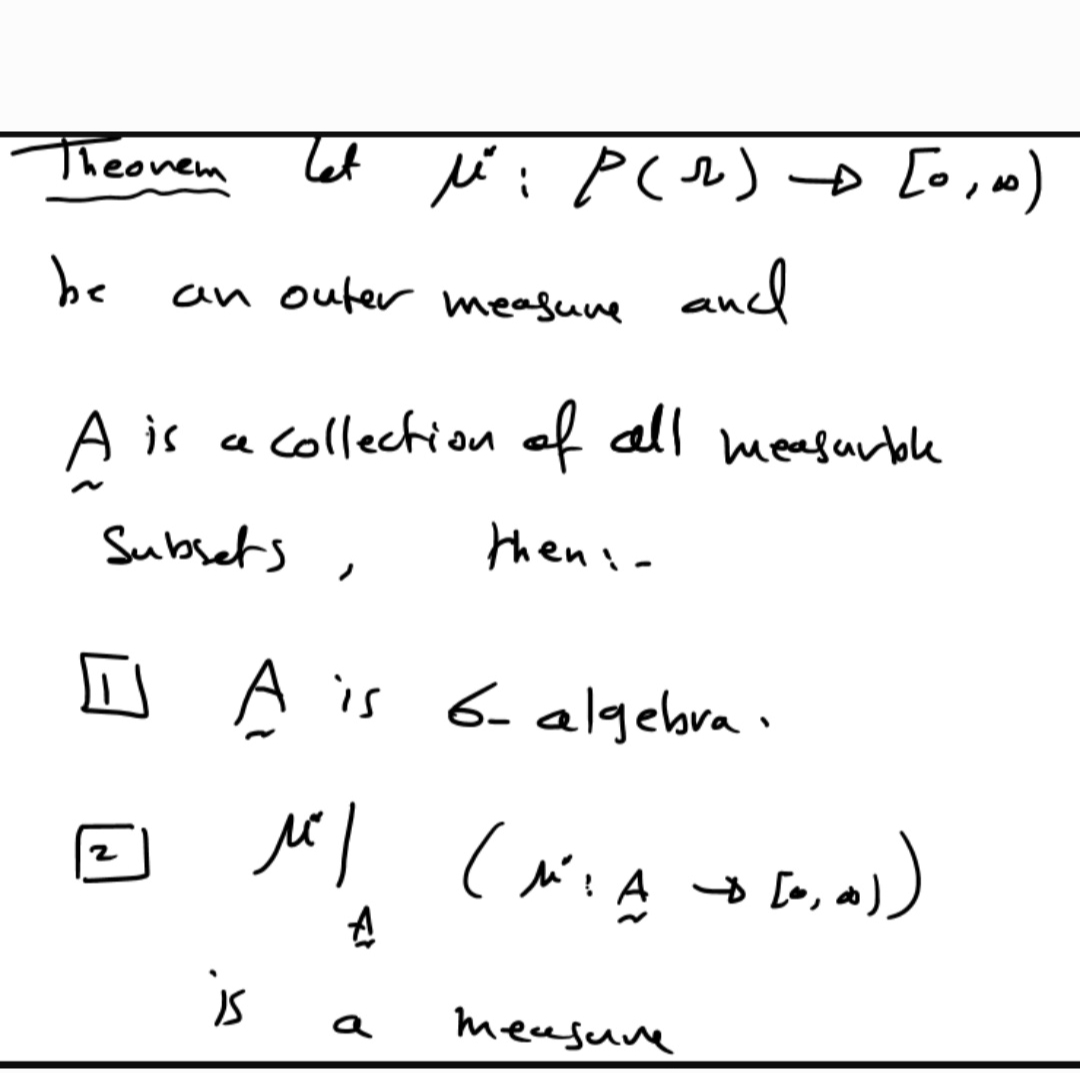 Theorem Let μ* : P(Ω) → [0, ∞)
be an outer measure and
A is a collection of all measurble
Subsets , then :-
1 A is σ- algebra.
2 μ*| A ( μ* : A → [0, ∞) )
is a measure